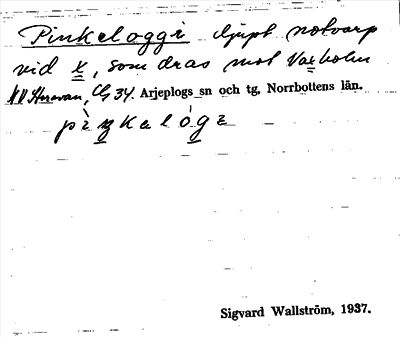 Pinkeloggi djupt notvarp
vid x, som dras mot Varholm
NV Hornavan, Cg 34. Arjeplogs sn och tg, Norrbottens län.
Sigvard Wallström, 1937.